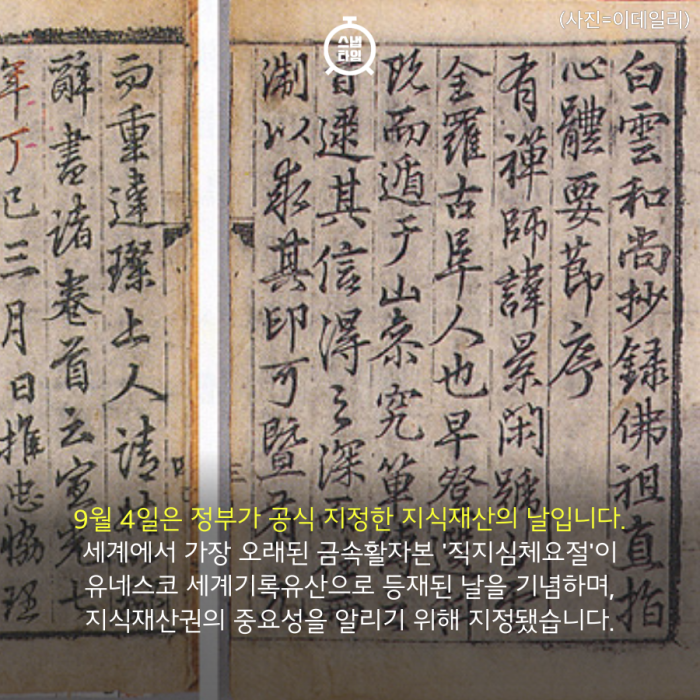 (사진=이데일리)
스냅
타임
白雲和尚抄録佛祖直指
心體要節序
有禪師諱景閑號
全羅古阜人也早登
既而遁于山
其信得之深
以求其印可暨
而重違璨上人請
辭書諸卷首云宣光七
年丁巳三月日推忠協理
9월 4일은 정부가 공식 지정한 지식재산의 날입니다.
세계에서 가장 오래된 금속활자본 '직지심체요절'이
유네스코 세계기록유산으로 등재된 날을 기념하며,
지식재산권의 중요성을 알리기 위해 지정됐습니다.